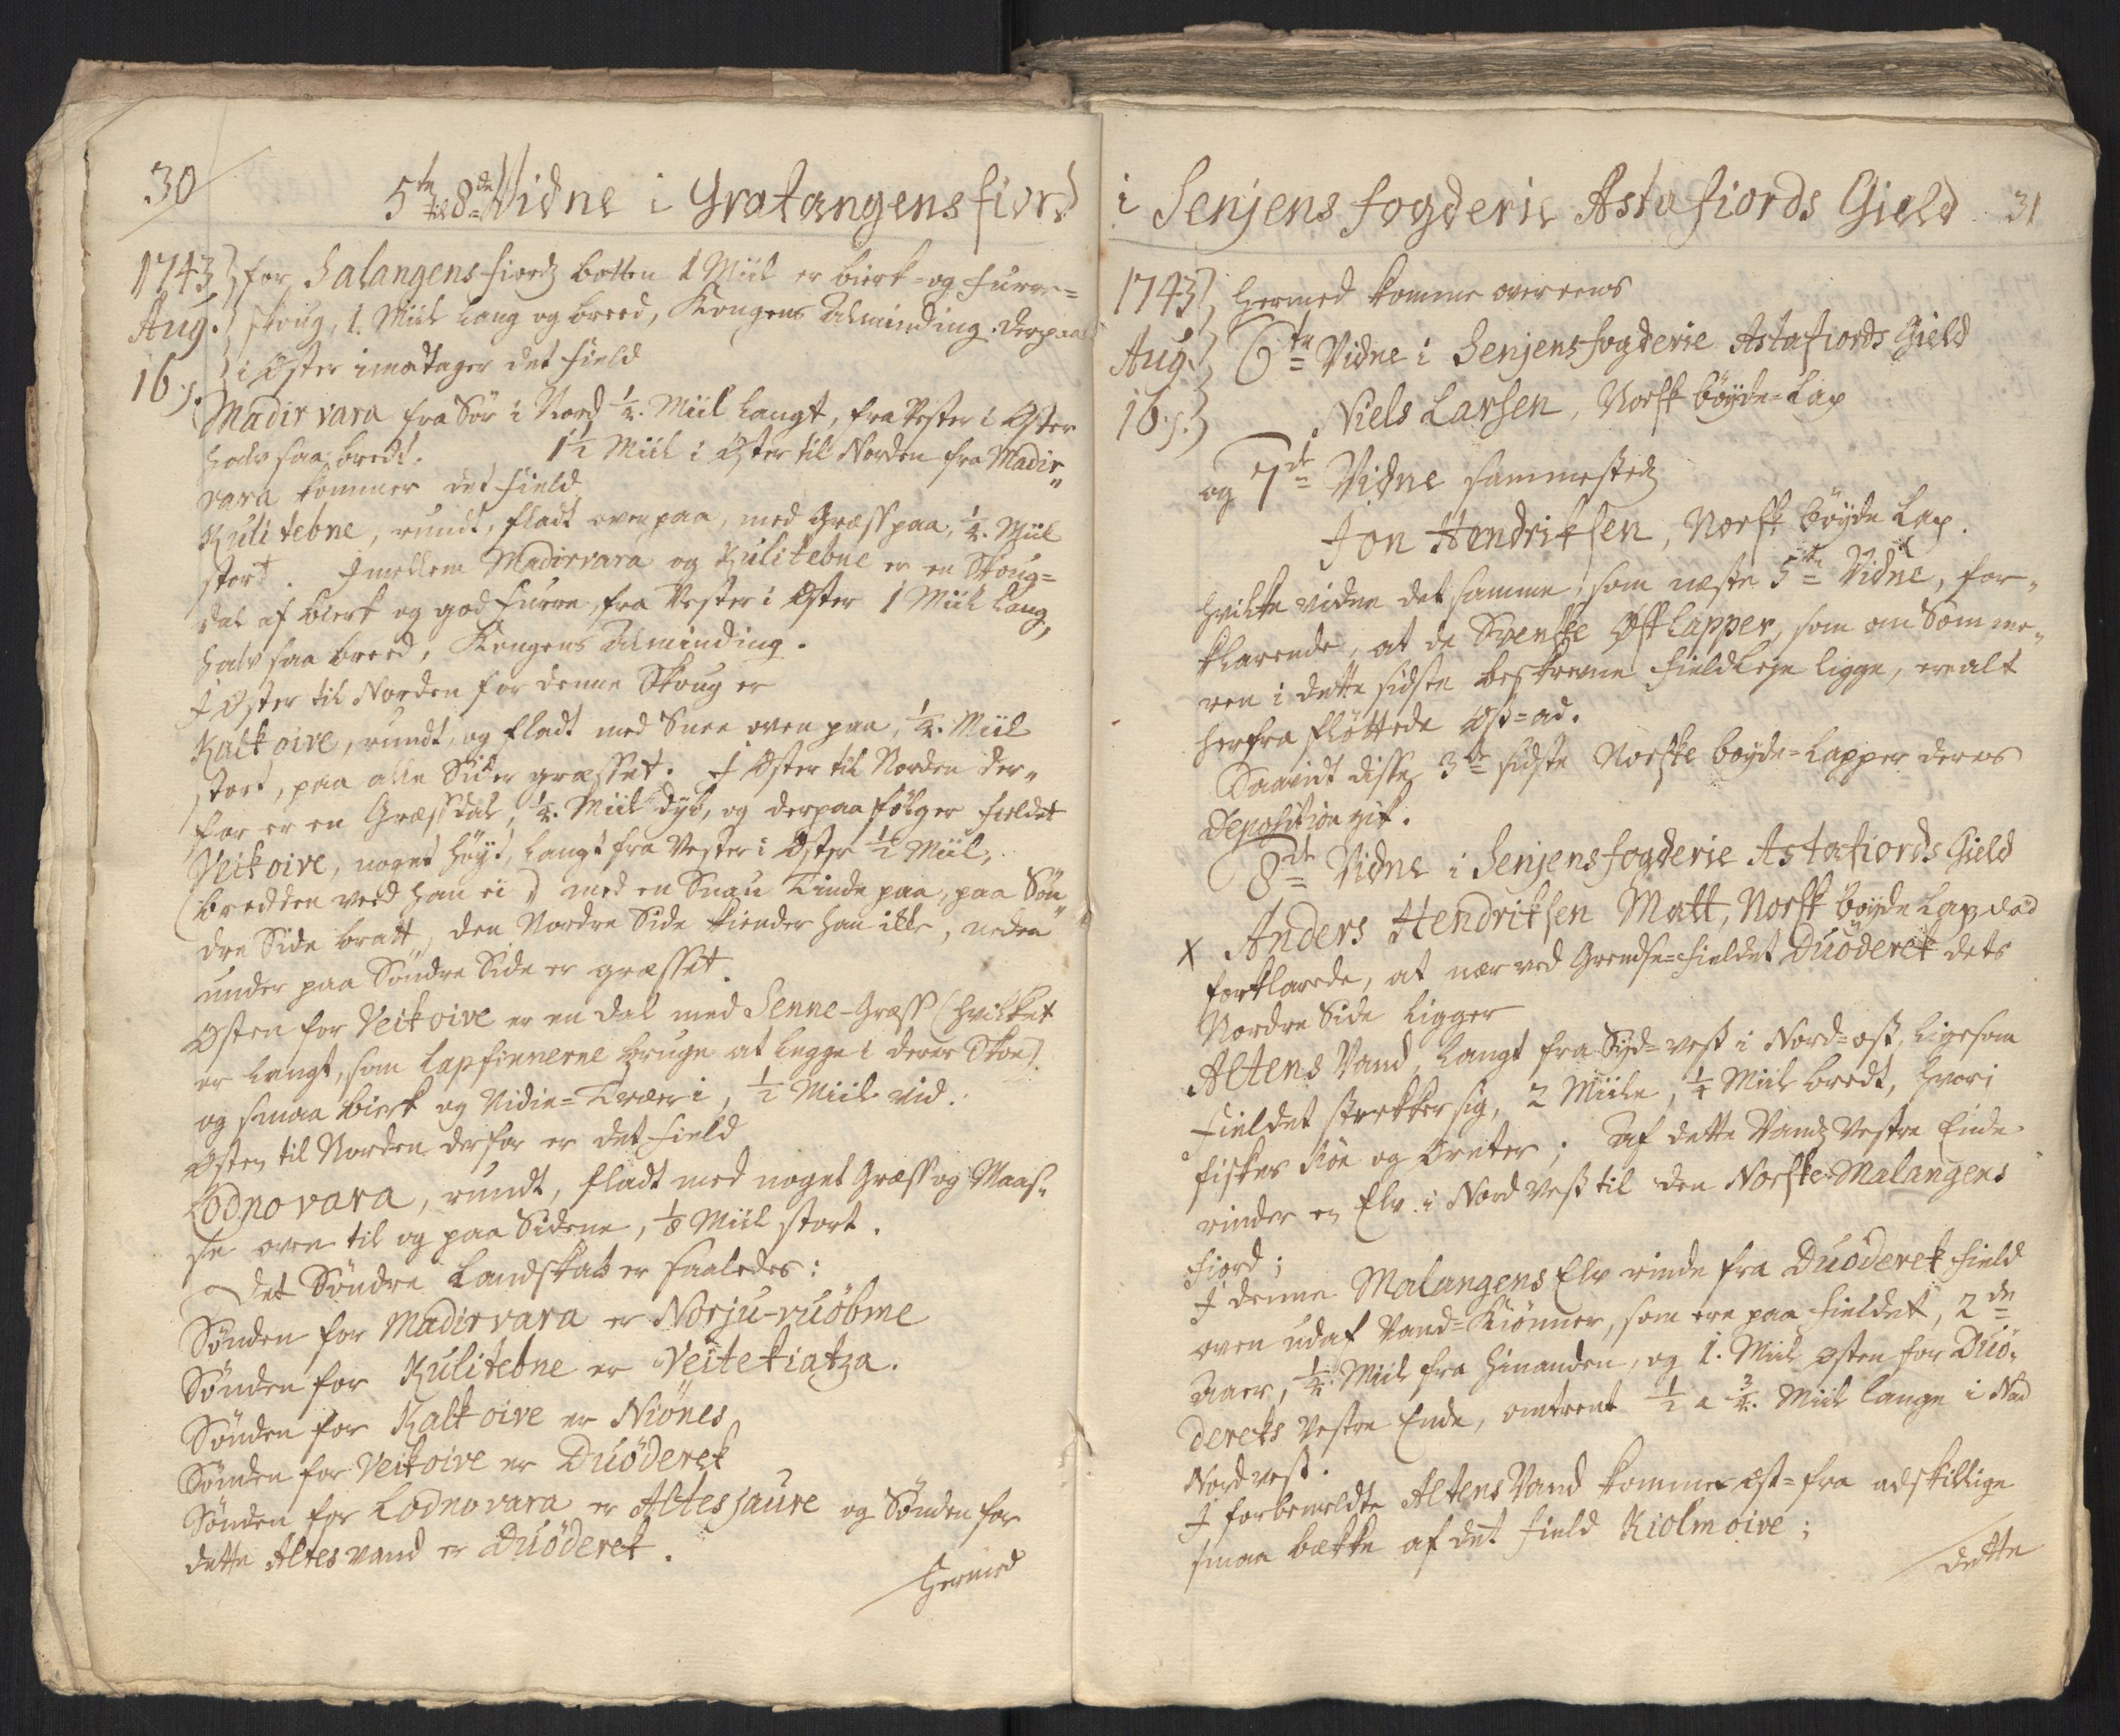 30
5te til 8de Vidne i Gratangens fiord
1743 for Salangens fiords botten 1 Miil er birk- og furre=
Aug. skoug, 1. Miil lang og breed, Kongens Alminding. Derpaa
16 s. i Øster imodtager det field
Madir vara fra Sør i Nord 1/4. Miil langt, fra Vester i Øster
halv saa bredt. 1 1/2 Miil i Øster til Norden fra Madir"
vara kommer det field
Kulitebne, rundt, fladt oven paa, med Græss paa, 1/4. Miil
stort. Imellem Madirvara og Kulitebne er en Skoug=
dal af birk og god furre, fra Vester i Øster 1 Miil lang,
halv saa breed, Kongens Alminding.
I Øster til Norden for denne Skoug er
Kalkoive, rundt, og fladt med Snee oven paa, 1/4. Miil
stort, paa alle Sider græsset. I Øster til Norden der"
for er en Græssdal, 1/4. Miil dyb, og derpaa følger fieldet
Veikoive, noget høyt, langt fra Vester i Øster 1/2 Miil,
(bredden veed han ei) med en Snau Tinde paa, paa Søn"
dre Side bratt, den Nordre Side kiender han ikke, neden
under paa Søndre Side er græsset.
Østen for Veikoive er en dal med Senne-Græss (hvilket
er langt, som Lapfinnerne bruge at legge i deres Skoe)
og smaa birk og Vidie=Træer i, 1/2 Miil vid.
Østen til Norden derfor er det field
Lodnovara, rundt, fladt med noget Græss og Maas"
se oven til og paa Siderne, 1/8 Miil stort.
Det Søndre Landskab er saaledes:
Sønden for Madirvara er Norju-vuøbme
Sønden for Kulitebne er Veitetiatza.
Sønden for Kalkoive er Niønes
Sønden for Veikoive er Duøderek
Sønden for Lodnovara er Altesjaure og Sønden for
dette Altesvand er Duøderek.
Hermed
i Senjens fogderie Astafiords Gield 31
1743 Hermed komme overeens
Aug. 6te Vidne i Senjens fogderie Astafiords Gield
16 s. Niels Larsen, Norsk bøyde=Lap
og 7de Vidne sammesteds
Jon Hendriksen, Norsk bøyde Lap.
hvilke vidne det samme, som næste 5te Vidne, for"
klarende, at de Svenske Øst Lapper, som om Somme"
ren i dette sidste beskrevne fieldleje ligge, ere alt
herfra fløttede Øst=ad.
Saavidt disse 3de sidste Norske bøyde=Lapper deres
Deposition gik.
8de Vidne i Senjens fogderie Astafiords Gield
x Anders Hendriksen Matt, Norsk bøyde Lap
forklarede, at nær ved Grendse=fieldet Duøderek dets
Nordre Side ligger
Altens Vand, langt fra Syd=vest i Nord=øst, ligesom
fieldet strekker sig, 2 Miile, 1/4 Miil bredt, hvori
fiskes Røe og Øreter; Af dette Vands Vestre Ende
rinder en Elv i Nord Vest til den Norske Malangens
fiord;
I denne Malangens Elv rinde fra Duøderek field
oven udaf Vand=Kiønner, som ere paa fieldet, 2de
Aaer, 1/4. Miil fra hinanden, og 1. Miil Østen for Duø"
dereks Vestre Ende, omtrent 1/2 a 3/4. Miil lange i Nord
Nordvest.
I forbemeldte Altens Vand kommer øst=fra adskillige
smaa bekke af det field Kiolmoive;
dette